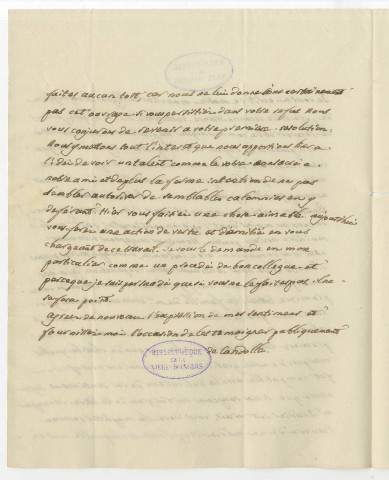 faites aucun tort, car nous ne lui donnerions certainement
pas cet ouvrage si vous persistiez dans votre refus. Nous
vous conjurons de revenir a votre première resolution.
Nous y mettons tout l'interet que nous apportions hier a
l'idée de voir un talent comme le votre consacré a
notre ami et de plus la ferme intention de ne pas
sembler autoriser de semblables calomnies en y
deferant. Hier vous faisiez une chose aimable aujourd'hui
vous ferez une action de vertu et d'amitié en vous
chargeant de ce travail. Je vous le demande en mon
particulier comme un procédé de bon collegue et
parceque je suis persuadé que si vous ne le faites pas, il ne
se fera point.
agreez de nouveau l'expression de mes sentimens et
fournissez moi l'occasion de les temoigner publiquement
BIBLIOTHEQUE
DE LA
VILLE D'ANGERS